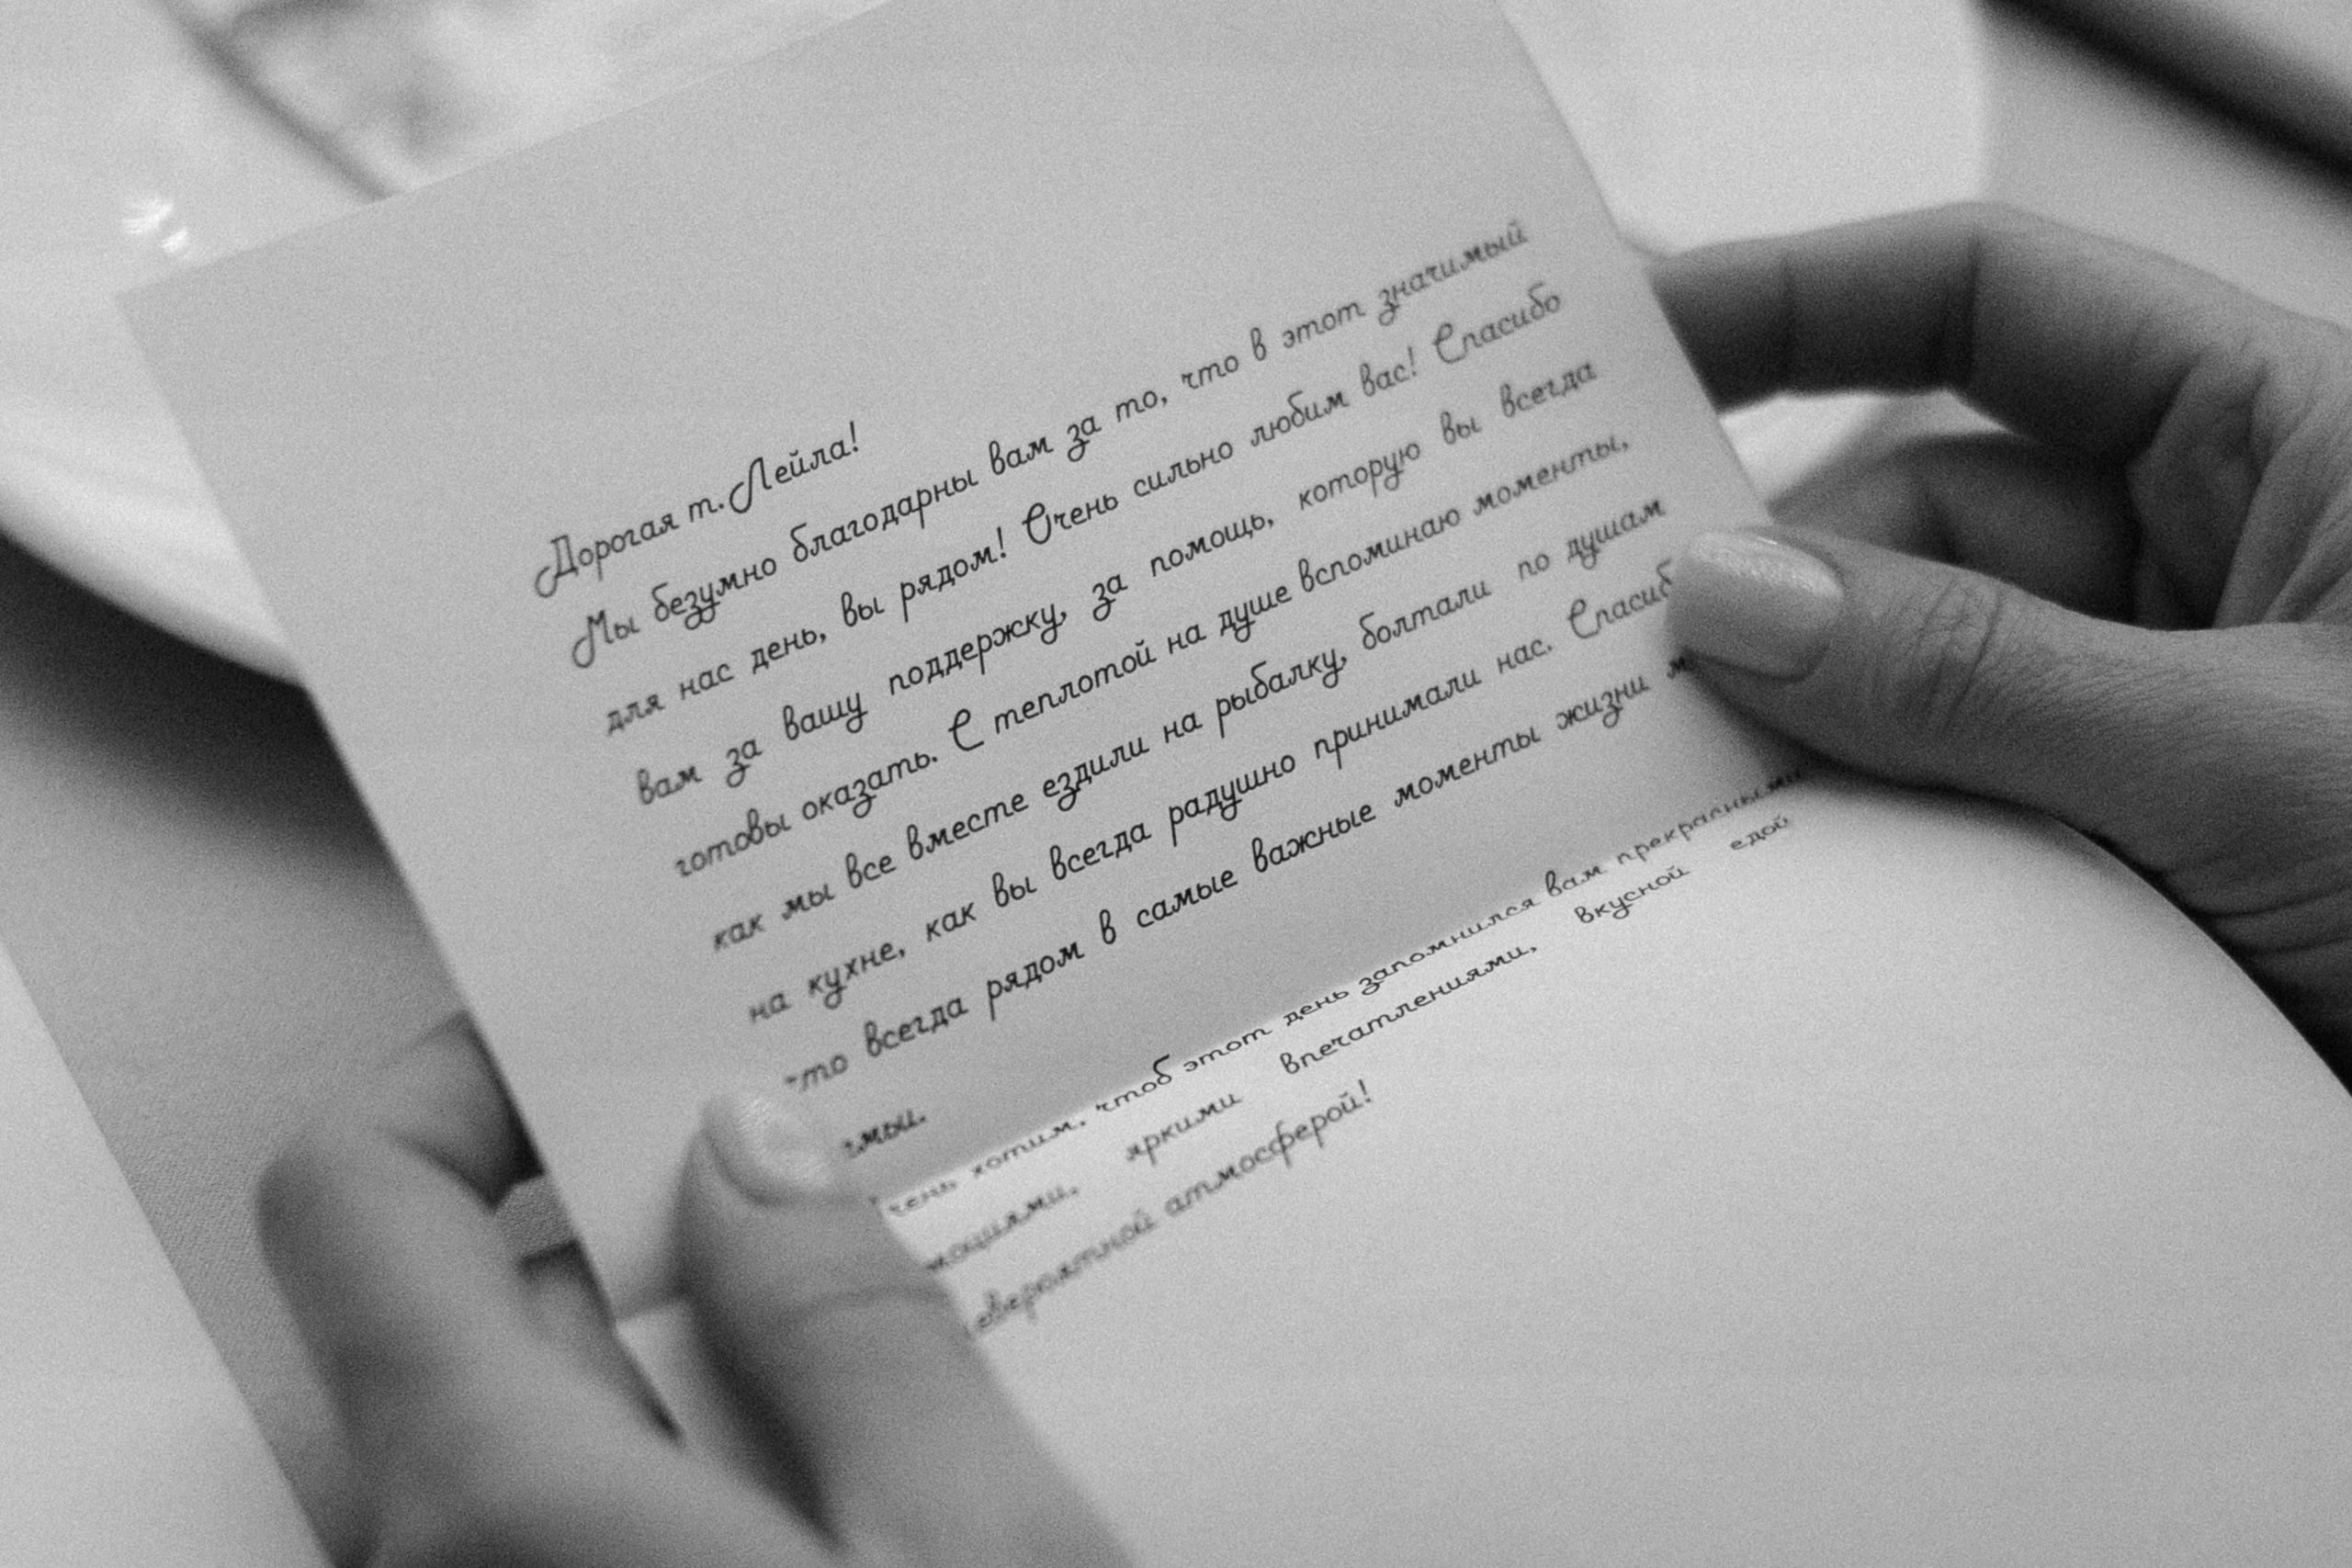 Дорогая т. Лейла!
Мы безумно благодарны вам за то, что в этот значимый
для нас день, вы рядом! Очень сильно любим вас! Спасибо
вам за вашу поддержку, за помощь, которую вы всегда
готовы оказать. С теплотой на душе вспоминаю моменты,
как мы все вместе ездили на рыбалку, болтали по душам
на кухне, как вы всегда радушно принимали нас. Спасиб
что всегда рядом в самые важные моменты жизни
хотим, чтоб этот день запомнился вам прекрасными
яркими впечатлениями, вкусной едой
атмосферой!